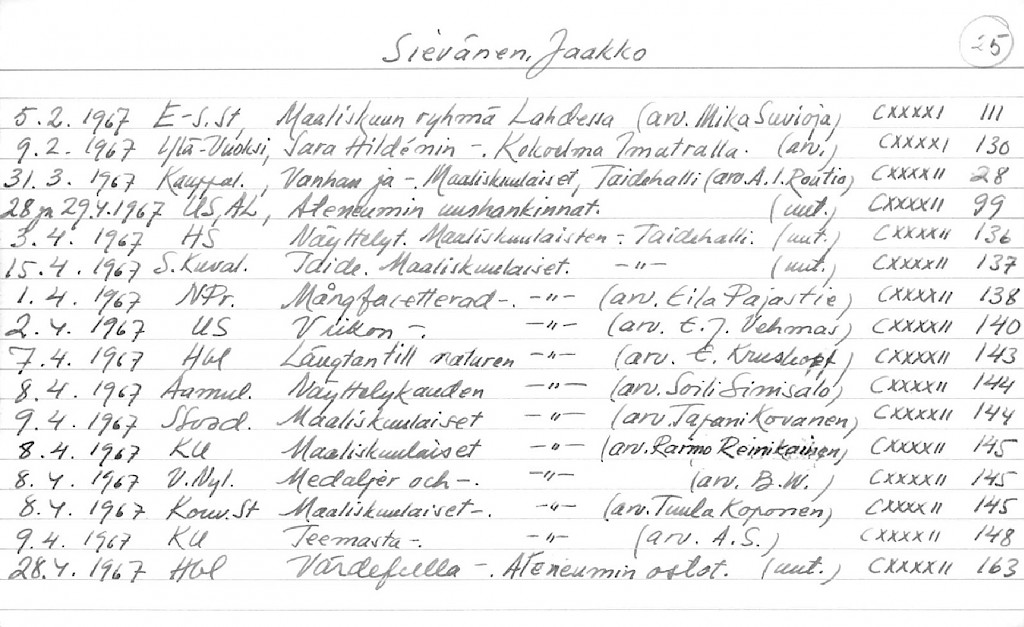 Sievänen, Jaakko 25
5.2. 1967 E-S.St, Maaliskuun ryhmä Lahdessa (arv. Mika Suvioja) CXXXXI 111
9.2. 1967 Ylä-Vuoksi, Sara Hildénin -. Kokoelma Imatralla. (arv.) CXXXXI 130
31.3. 1967 Kauppal., Vanhan ja -. Maaliskuulaiset, Taidehalli (arv. A.I. Routio) CXXXXII 28
28 ja 29.4.1967 US, AL, Ateneumin uushankinnat. (uut.) CXXXXII 99
3.4. 1967 HS Näyttelyt. Maaliskuulaisten -. Taidehalli. (uut.) CXXXXII 136
15.4. 1967 S.Kuval. Taide. Maaliskuulaiset. -"- (uut.) CXXXXII 137
1.4. 1967 NPr. Mångfacetterad -. -"- (arv. Eila Pajastie) CXXXXII 138
2.4. 1967 US Viikon -. -"- (arv. E.J. Vehmas) CXXXXII 140
7.4. 1967 Hbl Längtan till naturen -"- (arv. E. Kruskopf) CXXXXII 143
8.4. 1967 Aamul. Näyttelykauden -"- (arv. Soili Sinisalo) CXXXXII 144
9.4. 1967 SSosd. Maaliskuulaiset -"- (arv. Tapani Kovanen) CXXXXII 144
8.4. 1967 KU Maaliskuulaiset -"- (arv. Rarmo Reinikainen) CXXXXII 145
8.4. 1967 V.Nyl. Medaljer och -. -"- (arv. B.W.) CXXXXII 145
8.4. 1967 Kouv.St Maaliskuulaiset -. -"- (arv. Tuula Koponen) CXXXXII 145
9.4. 1967 KU Teemasta -. -"- (arv. A.S.) CXXXXII 148
28.4. 1967 Hbl Värdefulla -. Ateneumin ostot. (uut.) CXXXXII 163